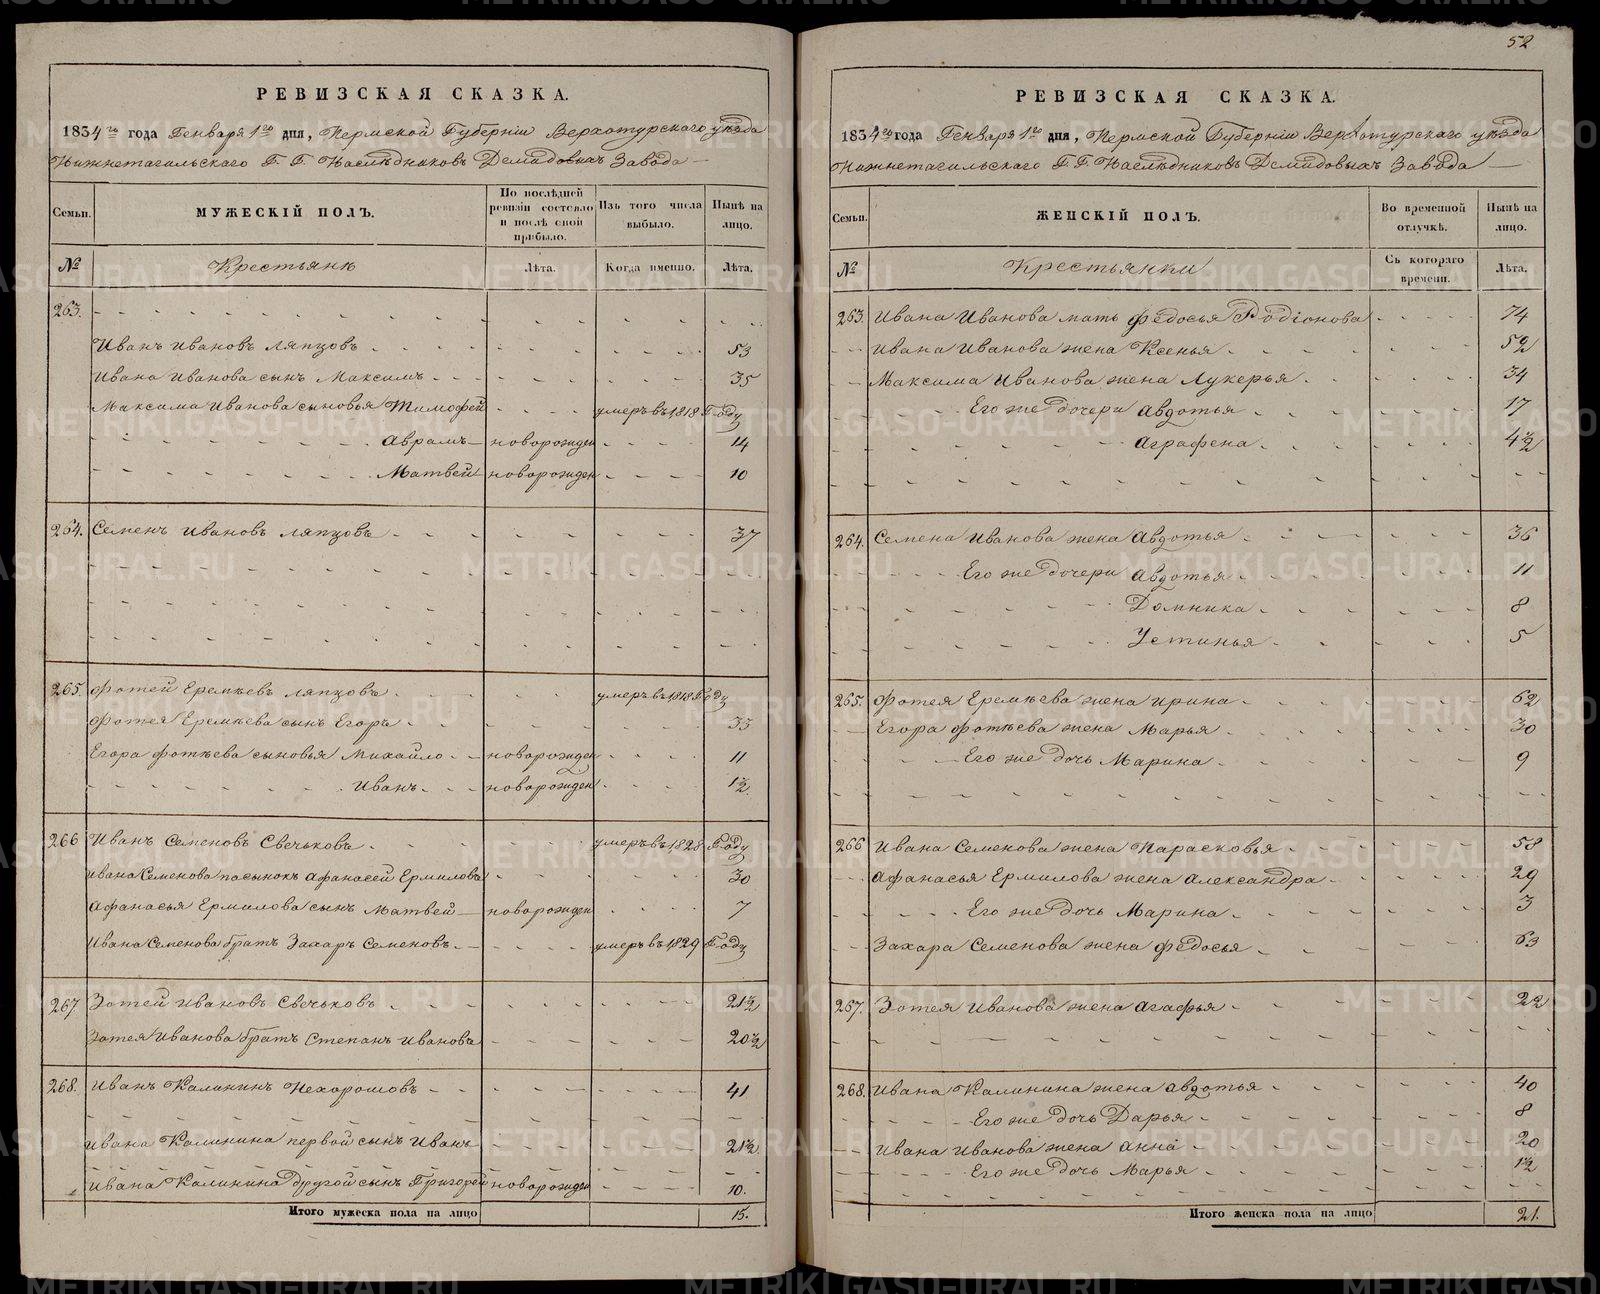 52
РЕВИЗСКАЯ СКАЗКА.
1834го года Генваря 1го дня, Пермской Губернiи Верхотурскаго уѣзда
Нижнетагильскаго Г. Г. Наслѣдниковъ Демидовыхъ Завода
Семьи. МУЖЕСКIЙ ПОЛЪ. По послѣдней ревизiи состояло и послѣ оной прибыло. Изъ того числа выбыло. Нынѣ на лицо.
№ Крестьянѣ Лѣта. Когда именно. Лѣта.
263.
Иванъ Ивановъ Ляпцовъ 53
Ивана Иванова сынъ Максимъ 35
Максима Иванова сыновья Тимофей умеръ въ 1818 Году
Аврамъ новорожден 14
Матвей новорожден 10
264. Семенъ Ивановъ Ляпцовъ 37
265. Фотей Еремѣевъ Ляпцовъ умеръ въ 1818 Году
Фотея Еремѣева сынъ Егоръ 33
Егора Фотѣева сыновья Михайло новорожден 11
Иванъ новорожден 1½
266 Иванъ Семеновъ Свечьковъ умеръ въ 1828 Году
Ивана Семенова пасынокъ Афанасей Ермиловъ 30
Афанасья Ермилова сынъ Матвей новорожден 7
Ивана Семенова братъ Захаръ Семеновъ умеръ въ 1829 Году
267 Зотей Ивановъ Свечьковъ 21½
Зотея Иванова братъ Степанъ Иванова 20½
268. Иванъ Калининъ Нехорошовъ 41
Ивана Калинина первой сынъ Иванъ 21½
Ивана Калинина другой сынъ Григорей новорожден 10.
Итого мужеска пола на лицо 15.
РЕВИЗСКАЯ СКАЗКА.
1834го года Генваря 1го дня, Пермской Губернiи Верхотурскаго уѣзда
Нижнетагильскаго Г. Г. Наслѣдниковъ Демидовыхъ Завода
Семьи. ЖЕНСКIЙ ПОЛЪ. Во временной отлучкѣ. Нынѣ на лицо.
№ Крестьянки Съ котораго времени. Лѣта.
263. Ивана Иванова мать Федосья Родiонова 74
Ивана Иванова жена Ксенья 52
Максима Иванова жена Лукерья 34
Его же дочери Авдотья 17
Аграфена 4½
264. Семена Иванова жена Авдотья 36
Его же дочери Авдотья 11
Домника 8
Устинья 5
265. Фотея Еремѣева жена Ирина 62
Егора Фотѣева жена Марья 30
Его же дочь Марина 9
266 Ивана Семенова жена Парасковья 58
Афанасья Ермилова жена Александра 29
Его же дочь Марина 3
Захара Семенова жена Федосья 63
267. Зотея Иванова жена Агафья 22
268. Ивана Калинина жена Авдотья 40
Его же дочь Дарья 8
Ивана Иванова жена Анна 20
Его же дочь Марья 1½
Итого женска пола на лицо 21.
METRIKI.GASO-URAL.RU